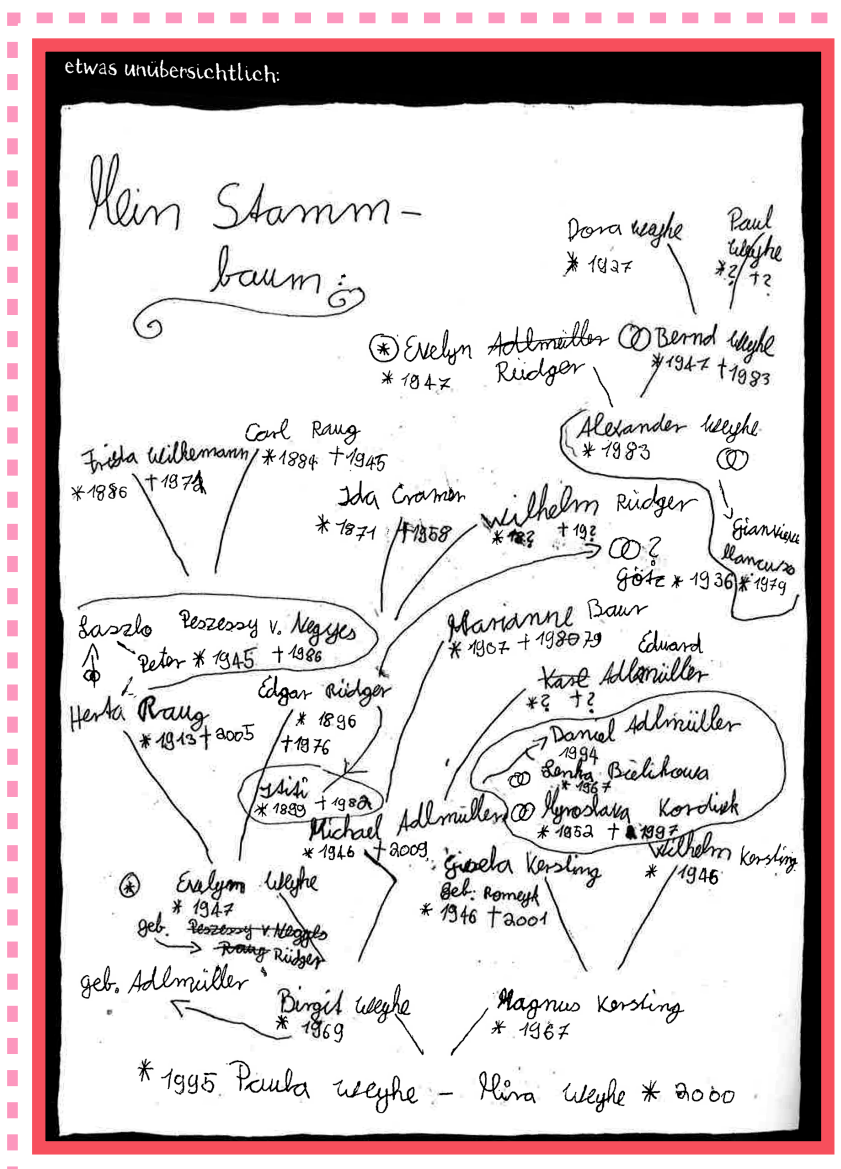 etwas unübersichtlich:
Mein Stamm-
baum:
Dora Weyhe
* 1927
Paul
Weyhe
*? †?
* Evelyn Adlmüller
Rüdger
* 1947
Bernd Weyhe
* 1947 † 1983
Alexander Weyhe
* 1983
Mancuso
* 1979
Frida Wilkemann
* 1886
Carl Raug
* 1884 † 1945
Ida Cramer
* 1871 † 1958
Wilhelm Rüdger
* 18? † 19?
?
Götz * 1936
Laszlo Peszessy v. Negyes
Peter * 1945 † 1986
Herta Raug
* 1913 † 2005
Edgar Rüdger
* 1896
† 1976
* 1899 † 1982
Marianne Baur
* 1907 † 1980 79
Eduard
Karl Adlmüller
*? †?
Daniel Adlmüller
1994
Lenka Bielikowa
* 1967
Myroslava Kordiak
* 1952 † 1997
Michael Adlmüller
* 1946 † 2009
Gisela Kersting
geb. Romeyk
* 1946 † 2001
Wilhelm Kersting
* 1946
* Evelyn Weyhe
* 1947
geb. Peszessy v. Negyes
Raug Rüdger
geb. Adlmüller
Birgit Weyhe
* 1969
Magnus Kersting
* 1967
* 1995 Paula Weyhe - Mira Weyhe * 2000